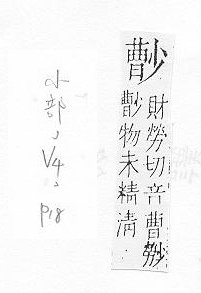 ⿰曹少
財勞切音曹
物未精清
小部, V4, p18